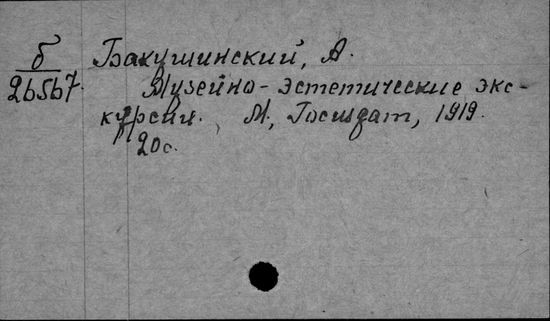 б Бакушинский, А.
26567. Музейно-эстетические экс-
курсии. М., Госиздат, 1919.
20с.